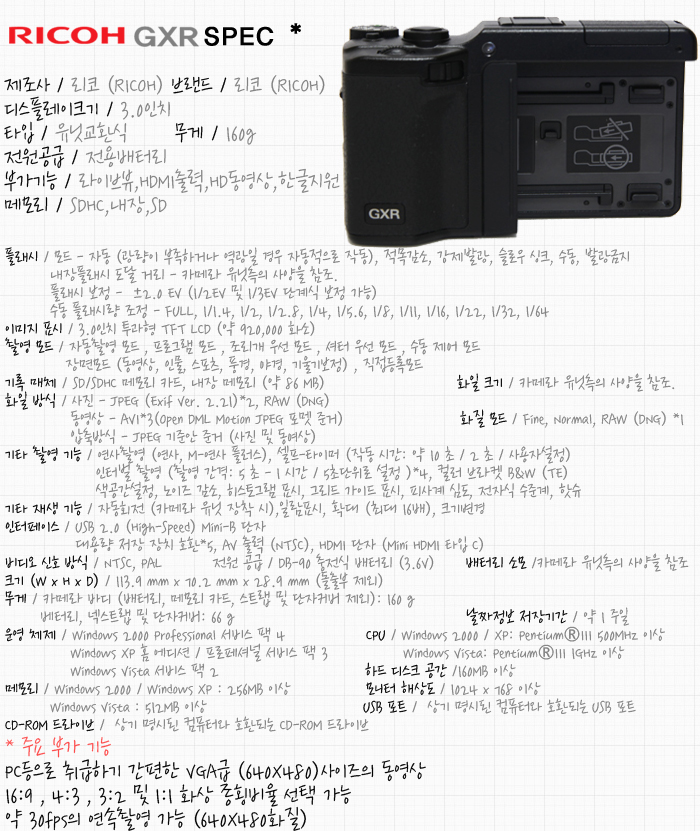 RICOH GXR SPEC *
제조사 / 리코 (RICOH) 브랜드 / 리코 (RICOH)
디스플레이크기 / 3.0인치
타입 / 유닛교환식 무게 / 160g
전원공급 / 전용배터리
부가기능 / 라이브뷰,HDMI출력,HD동영상,한글지원
메모리 / SDHC,내장,SD
GXR
플래시 / 모드 - 자동 (광량이 부족하거나 역광일 경우 자동적으로 작동), 적목감소, 강제발광, 슬로우 싱크, 수동, 발광금지
내장플래시 도달 거리 - 카메라 유닛측의 사양을 참조.
플래시 보정 - ±2.0 EV (1/2EV 및 1/3EV 단계식 보정 가능)
수동 플래시량 조정 - FULL, 1/1.4, 1/2, 1/2.8, 1/4, 1/5.6, 1/8, 1/11, 1/16, 1/22, 1/32, 1/64
이미지 표시 / 3.0인치 투과형 TFT LCD (약 920,000 화소)
촬영 모드 / 자동촬영 모드 , 프로그램 모드 , 조리개 우선 모드 , 셔터 우선 모드 , 수동 제어 모드
장면모드 (동영상, 인물, 스포츠, 풍경, 야경, 기울기보정) , 직접등록모드
기록 매체 / SD/SDHC 메모리 카드, 내장 메모리 (약 86 MB) 화일 크기 / 카메라 유닛측의 사양을 참조.
화일 방식 / 사진 - JPEG (Exif Ver. 2.21)*2, RAW (DNG)
동영상 - AVI*3(Open DML Motion JPEG 포맷 준거) 화질 모드 / Fine, Normal, RAW (DNG) *1
압축방식 - JPEG 기준안 준거 (사진 및 동여상)
기타 촬영 기능 / 연사촬영 (연사, M-연사 플러스), 셀프-타이머 (작동 시간: 약 10 초 / 2 초 / 사용자설정)
인터벌 촬영 (촬영 간격: 5 초 - 1 시간 / 5초단위로 설정 )*4, 컬러 브라켓 B&W (TE)
색공간설정, 노이즈 감소, 히스토그램 표시, 그리드 가이드 표시, 피사계 심도, 전자식 수준계, 핫슈
기타 재생 기능 / 자동회전 (카메라 유닛 장착 시),일람표시, 확대 (최대 16배), 크기변경
인터페이스 / USB 2.0 (High-Speed) Mini-B 단자
대용량 저장 장치 호환*5, AV 출력 (NTSC), HDMI 단자 (Mini HDMI 타입 C)
비디오 신호 방식 / NTSC, PAL 전원 공급 / DB-90 충전식 배터리 (3.6V) 배터리 소모 /카메라 유닛측의 사양을 참조
크기 (W x H x D) / 113.9 mm x 70.2 mm x 28.9 mm (돌출부 제외)
무게 / 카메라 바디 (배터리, 메모리 카드, 스트랩 및 단자커버 제외): 160 g
베터리, 넥스트랩 및 단자커버: 66 g 날짜정보 저장기간 / 약 1 주일
운영 체제 / Windows 2000 Professional 서비스 팩 4 CPU / Windows 2000 / XP: PentiumⓇIII 500MHz 이상
Windows XP 홈 에디션 / 프로페셔널 서비스 팩 3 Windows Vista: PentiumⓇIII 1GHz 이상
Windows Vista 서비스 팩 2 하드 디스크 공간 /160MB 이상
메모리 / Windows 2000 / Windows XP : 256MB 이상 모니터 해상도 / 1024 x 768 이상
Windows Vista : 512MB 이상 USB 포트 / 상기 명시된 컴퓨터와 호환되는 USB 포트
CD-ROM 드라이브 / 상기 명시된 컴퓨터와 호환되는 CD-ROM 드라이브
* 주요 부가 기능
PC등으로 취급하기 간편한 VGA급 (640X480)사이즈의 동영상
16:9 , 4:3 , 3:2 및 1:1 화상 종횡비율 선택 가능
약 30fps의 연속촬영 가능 (640X480화질)